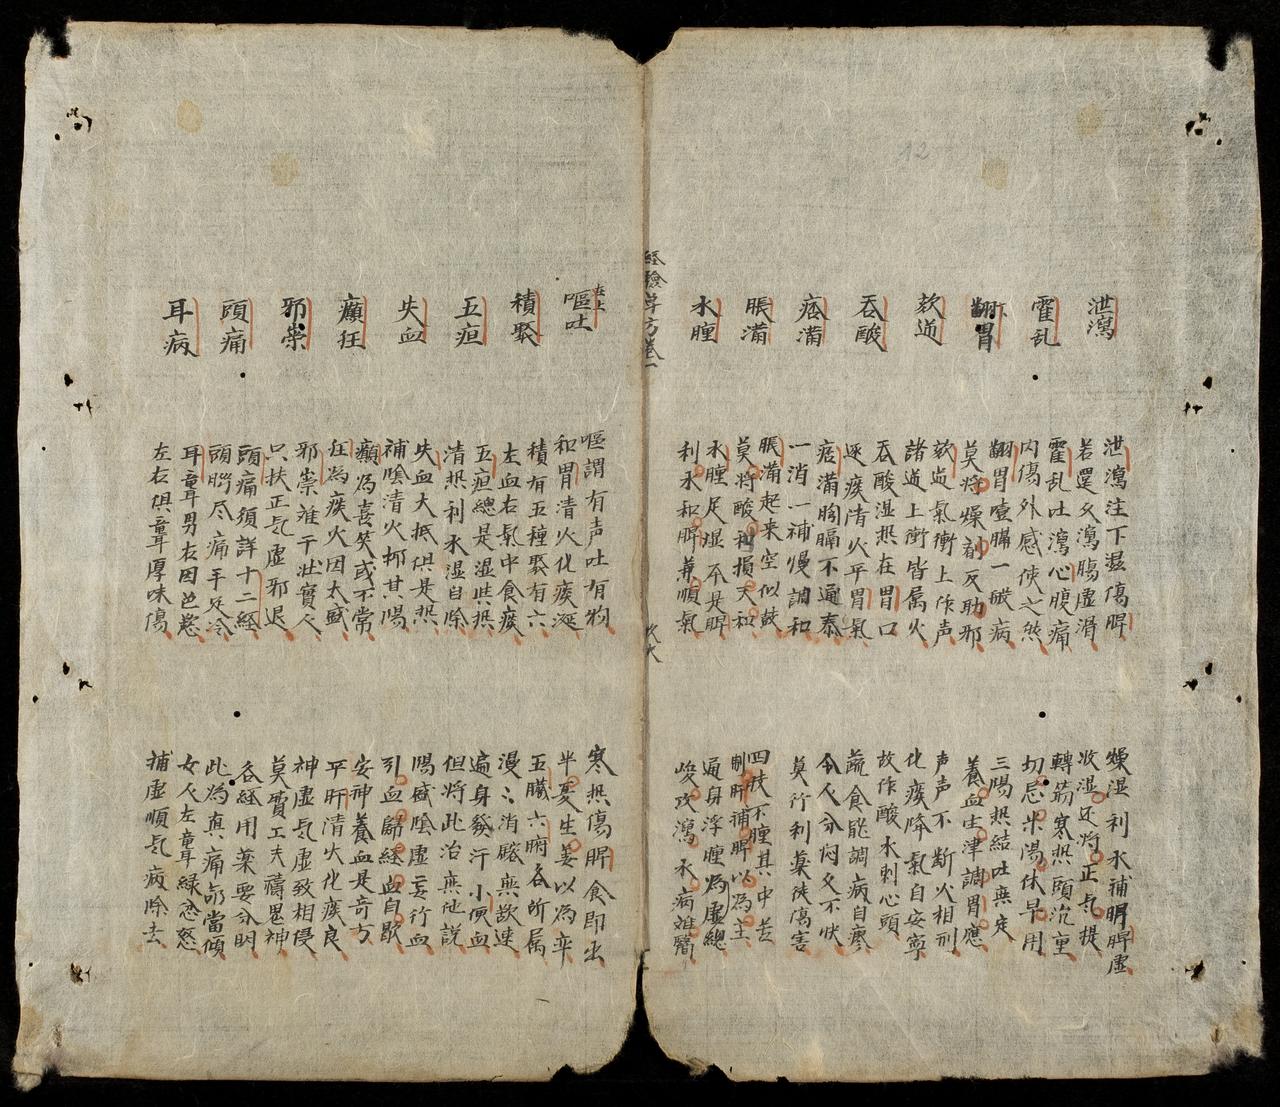 泄瀉
泄瀉注下濕傷脾
燥湿利水補明脾虛
若是久瀉腸虛滑
收湿还將正氣提
霍乱
霍乱吐瀉心腹痛
轉筋寒热頭沉重
内傷外感使之然
切忌米湯休早用
翻胃
翻胃噎膈一般病
三陽热結吐無定
莫將燥剂反助邪
養血生津調胃應
欬逆
欬逆氣衝上作声
声声不断火相刑
諸逆上衝皆属火
化痰降氣自安寧
吞酸
吞酸湿热在胃口
故作酸水刺心頭
逐痰清火平胃氣
蔬食能調病自瘳
痞滿
痞滿胸膈不通泰
令人分闷久不快
一消一補慢調和
莫行利藥徒傷害
脹滿
脹滿起来空似鼓
四肢不腫其中苦
莫將酸和損天和
制肝補脾以為主
水腫
水腫足湿不是脾
遍身浮腫為虛總
利水和脾兼順氣
峻攻瀉水病难醫
経驗單方卷一
嘔吐
嘔謂有声吐有物
寒热傷脾食即出
和胃清火化痰涎
半夏生姜以為率
積聚
積有五種聚有六
五臟六腑各所属
左血右氣中食痰
漫〻消磨無欲速
五疸
五疸總是湿与热
遍身發汗小便血
清热利水湿自除
但將此治無他説
失血
失血大抵俱是热
陽盛陰虛妄行血
補陰清火抑其陽
引血歸経血自歇
癲狂
癲為喜笑或不常
安神養血是奇方
狂為痰火因太盛
平肝清火化痰良
邪祟
邪祟难干壯實人
神虛氣虛致相侵
只扶正氣虛邪退
莫費工夫禱鬼神
頭痛
頭痛須詳十二経
各経用藥要分明
頭腦尽痛手足冷
此為真痛命當傾
耳病
耳聾男右因色慾
女人左聾緑忿怒
左右俱聾厚味傷
補虛順氣病除去